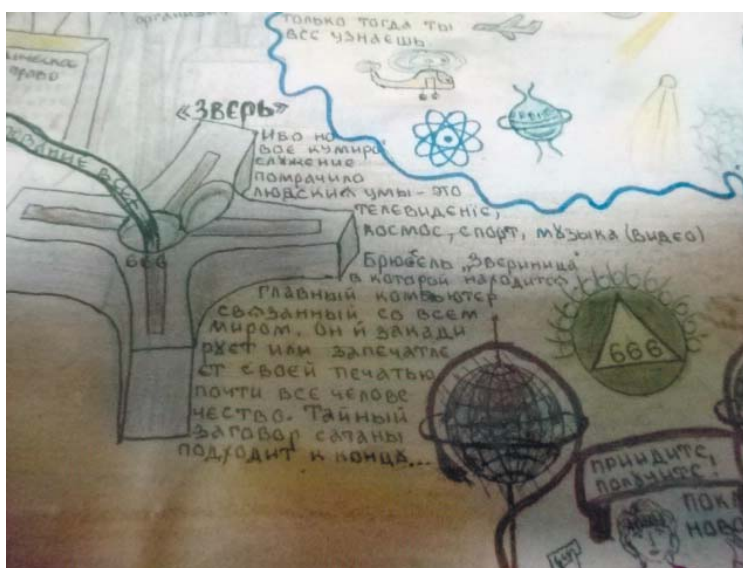 ТОЛЬКО ТОГДА ТЫ
ВСЕ УЗНАЕШЬ
ПРАВО
«ЗВЕРЬ»
ИБО НО
ВОЕ КУМИРО
СЛУЖЕНИЕ
ПОМРАЧИЛО
ЛЮДСКИЕ УМЫ - ЭТО
ТЕЛЕВИДЕНІЕ,
КОСМОС, СПОРТ, МУЗЫКА (ВИДЕО)
666
БРЮСЕЛЬ „ЗВЕРИНИЦА"
В КОТОРОЙ НАХОДИТСЯ
ГЛАВНЫЙ КОМПЬЮТЕР
СВЯЗАННЫЙ СО ВСЕМ
МИРОМ. ОН И ЗАКОДИ
РУЕТ ИЛИ ЗАПЕЧАТЛЕ
ЕТ СВОЕЙ ПЕЧАТЬЮ
ПОЧТИ ВСЕ ЧЕЛОВЕ
ЧЕСТВО. ТАЙНЫЙ
ЗАГОВОР САТАНЫ
ПОДХОДИТ К КОНЦУ...
666
ПРИИДИТЕ,
ПОЛУЧИТЕ!
ПОКЛ
НОВО